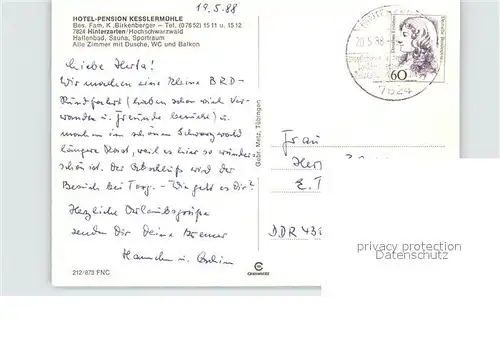 19.5.88
HOTEL-PENSION KESSLERMÜHLE
Bes. Fam. K. Birkenberger – Tel. (07652) 1511 u. 1512
7824 Hinterzarten/Hochschwarzwald
Hallenbad, Sauna, Sportraum
Alle Zimmer mit Dusche, WC und Balkon
Liebe Herta!
Wir machen eine kleine BRD-
Rundfahrt (haben schon viel Ver-
wandte u. Freunde besucht) u.
machen im schönen Schwarzwald
längere Rast, weil es hier so wunder-
schön ist. Der Abschluß wird der
Besuch bei – Wie geht es Dir?
Herzliche Urlaubsgrüße
senden Dir Deine Bremer
Hannchen u.
212/873 FNC
Gebr. Metz, Tübingen
20.5.88
7824
60
Frau
Her
E. T
DDR 43
privacy protection
Datenschutz